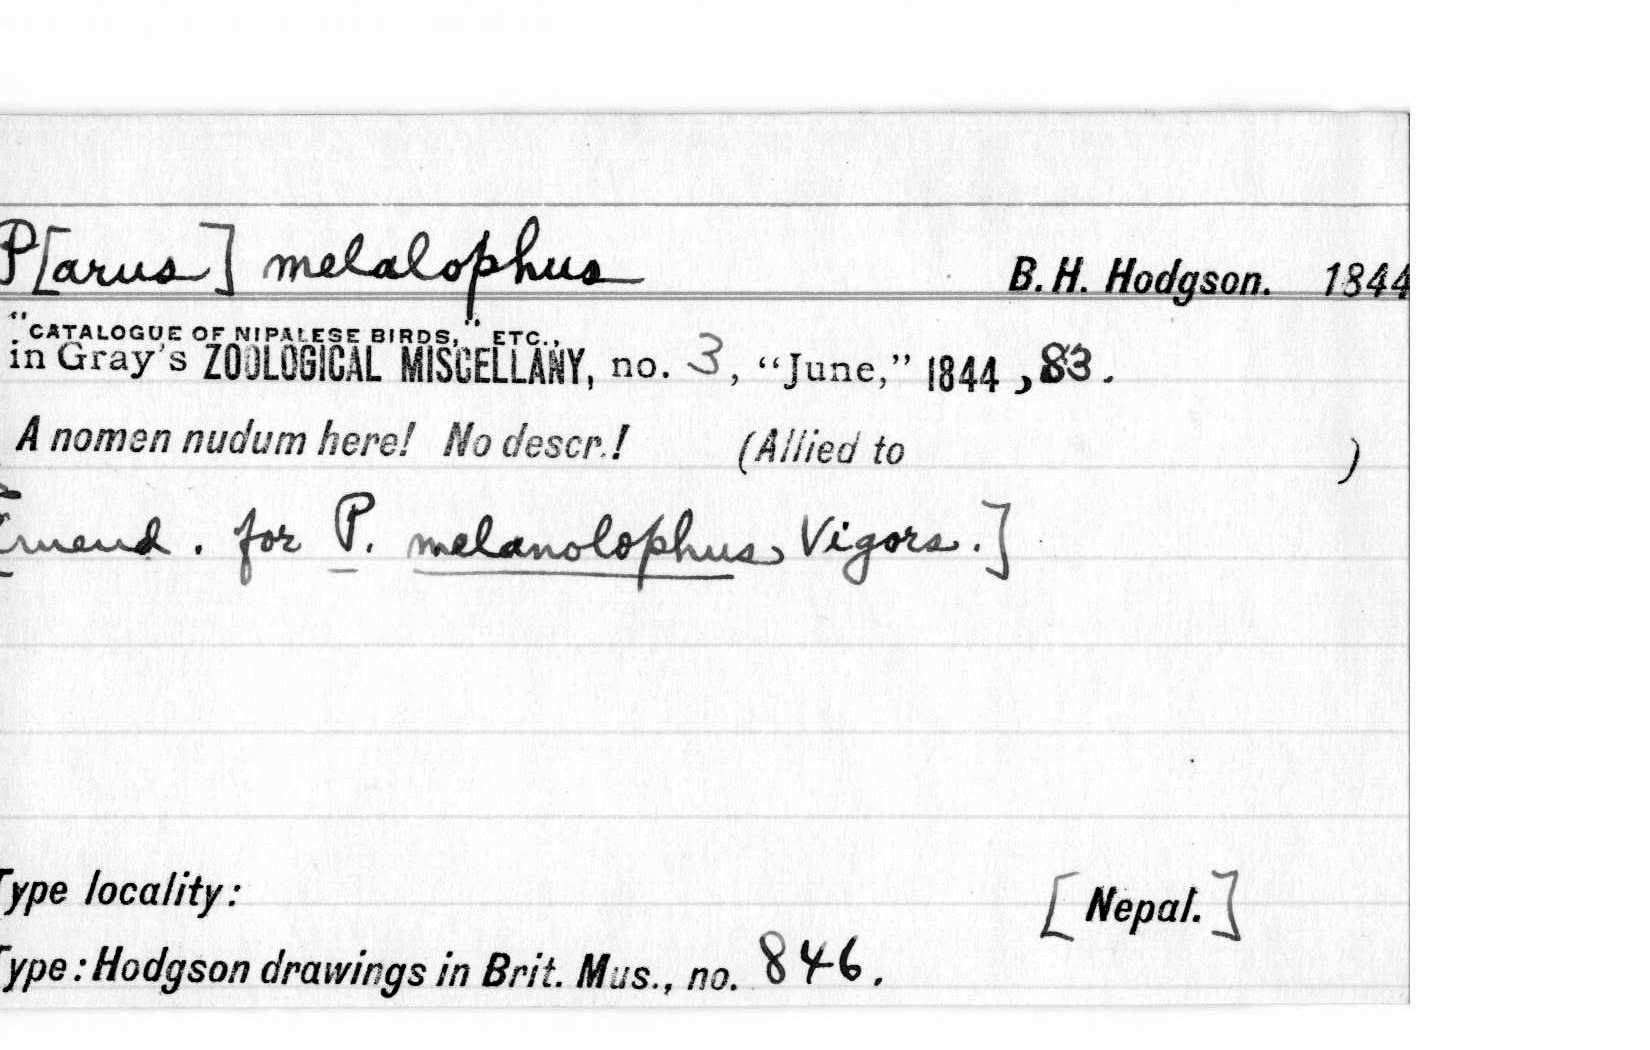 P[arus] melalophus B. H. Hodgson. 1844
"CATALOGUE OF NIPALESE BIRDS," ETC.,
in Gray's ZOOLOGICAL MISCELLANY, no. 3, "June," 1844, 83.
A nomen nudum here! No descr.! (Allied to )
[Emend. for P. melanolophus Vigors.]
Type locality: [Nepal.]
Type: Hodgson drawings in Brit. Mus., no. 846.